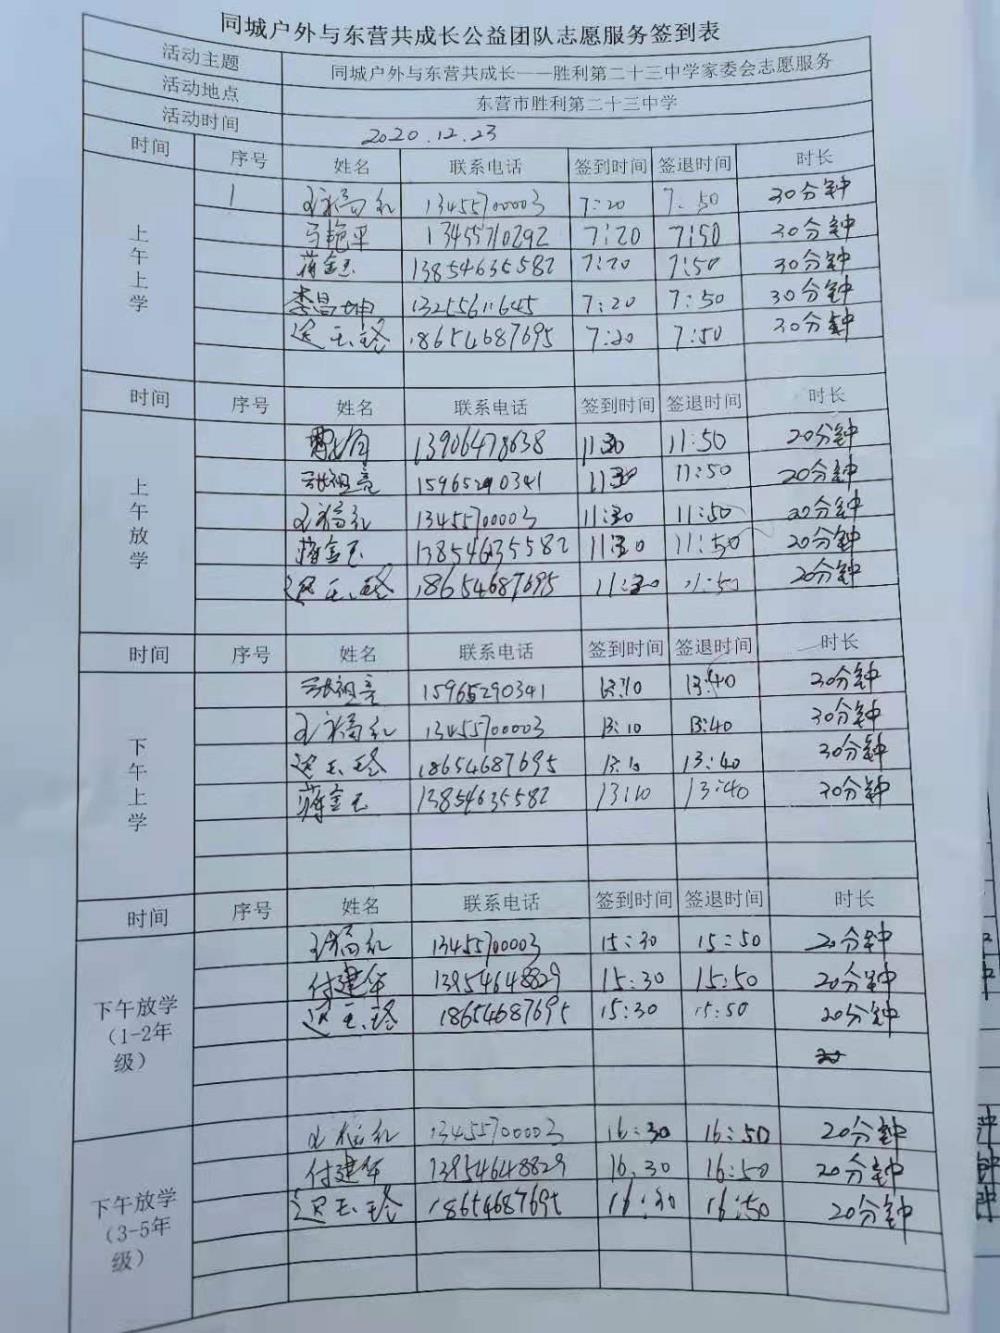 同城户外与东营共成长公益团队志愿服务签到表
活动主题 同城户外与东营共成长——胜利第二十三中学家委会志愿服务
活动地点 东营市胜利第二十三中学
活动时间 2020.12.23
时间 序号 姓名 联系电话 签到时间 签退时间 时长
上午上学
1 13455700003 7:20 7:50 30分钟
马艳平 13455710292 7:20 7:50 30分钟
蒋金玉 13854635582 7:20 7:50 30分钟
李昌坤 13255611645 7:20 7:50 30分钟
迟玉玲 18654687695 7:20 7:50 30分钟
时间 序号 姓名 联系电话 签到时间 签退时间 时长
上午放学
13906478638 11:30 11:50 20分钟
张祖亮 15965290341 11:30 11:50 20分钟
13455700003 11:30 11:50 20分钟
蒋金玉 13854635582 11:30 11:50 20分钟
迟玉玲 18654687695 11:30 11:50 20分钟
时间 序号 姓名 联系电话 签到时间 签退时间 时长
下午上学
张祖亮 15965290341 13:10 13:40 30分钟
13455700003 13:10 13:40 30分钟
迟玉玲 18654687695 13:10 13:40 30分钟
蒋金玉 13854635582 13:10 13:40 30分钟
时间 序号 姓名 联系电话 签到时间 签退时间 时长
下午放学
(1-2年
级)
13455700003 15:30 15:50 20分钟
付建华 13954648829 15:30 15:50 20分钟
迟玉玲 18654687695 15:30 15:50 20分钟
下午放学
(3-5年
级)
13455700003 16:30 16:50 20分钟
付建华 13954648829 16.30 16:50 20分钟
迟玉玲 18654687695 16:30 16:50 20分钟